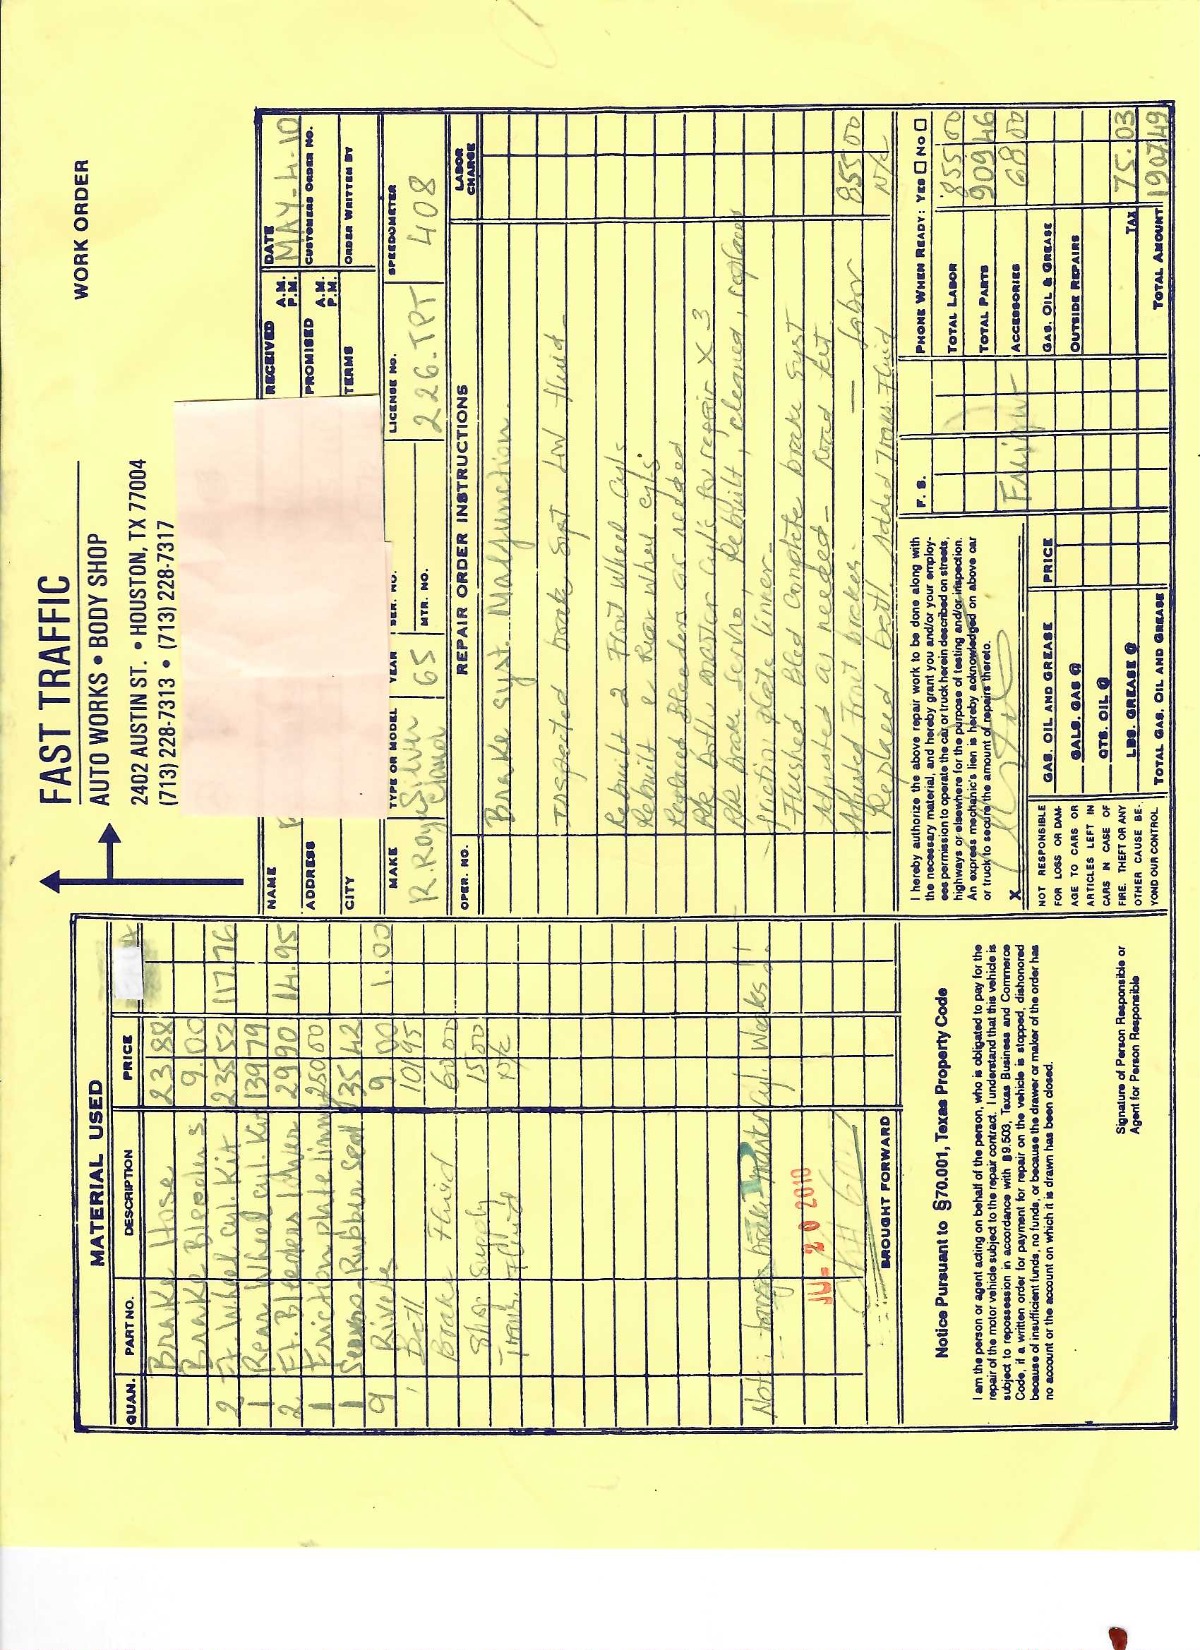 FAST TRAFFIC
AUTO WORKS • BODY SHOP
2402 AUSTIN ST. • HOUSTON, TX 77004
(713) 228-7313 • (713) 228-7317
WORK ORDER
MATERIAL USED
QUAN. PART NO. DESCRIPTION PRICE
Brake Hose 23 88
Brake Bleeders 9.00
2 Ft. Wheel Cyl. Kit 235 52 117.76
1 Rear Wheel Cyl. Kit 139 79
2 Ft. Bleeders 29 90 14.95
1 Friction plate linning 250 00
1 Servo Rubber Seal 35 42
9 Rivets 9.00 1.00
1 Batt. 101 95
Brake Fluid 60 00
Shop Supply 15 00
Trans. Fluid N/C
Not:
brake master Cyl. Weeks!
20 2010
BROUGHT FORWARD
NAME
ADDRESS
CITY
RECEIVED A.M. P.M.
PROMISED A.M. P.M.
TERMS
DATE MAY-4-10
CUSTOMERS ORDER NO.
ORDER WRITTEN BY
MAKE R. Royce
TYPE OR MODEL Silver Cloud
YEAR 65
SER. NO.
MTR. NO.
LICENSE NO. 226.TPT
SPEEDOMETER 408
OPER. NO. REPAIR ORDER INSTRUCTIONS LABOR CHARGE
Brake Syst. Malfunction.
Inspected brake Syst Low fluid
Rebuilt 2 Front Wheel Cyls
Rebuilt 2 Rear wheel cyls
Replaced Bleeders as needed
R/R both master cyls For repair X 3
R/R brake servo, Rebuilt, cleaned, replaced
friction plate linner
Flushed, Bled Complete brake Syst
Adjusted as needed - Road test
Adjusted Front brakes. — Labor 855 00
Replaced batt. Added Trans Fluid N/C
I hereby authorize the above repair work to be done along with
the necessary material, and hereby grant you and/or your employ-
ees permission to operate the car or truck herein described on streets,
highways or elsewhere for the purpose of testing and/or inspection.
An express mechanic's lien is hereby acknowledged on above car
or truck to secure the amount of repairs thereto.
X
NOT RESPONSIBLE
FOR LOSS OR DAM-
AGE TO CARS OR
ARTICLES LEFT IN
CARS IN CASE OF
FIRE, THEFT OR ANY
OTHER CAUSE BE-
YOND OUR CONTROL.
GAS, OIL AND GREASE PRICE
GALS. GAS @
QTS. OIL @
LBS. GREASE @
TOTAL GAS, OIL AND GREASE
F. S.
PHONE WHEN READY: YES ☐ NO ☐
TOTAL LABOR 855 00
TOTAL PARTS 909 46
ACCESSORIES 68 00
GAS, OIL & GREASE
OUTSIDE REPAIRS
TAX 75.03
TOTAL AMOUNT 1907.49
Notice Pursuant to §70.001, Texas Property Code
I am the person or agent acting on behalf of the person, who is obligated to pay for the
repair of the motor vehicle subject to the repair contract. I understand that this vehicle is
subject to repossession in accordance with §9.503, Texas Business and Commerce
Code, if a written order for payment for repair on the vehicle is stopped, dishonored
because of insufficient funds, no funds, or because the drawer or maker of the order has
no account or the account on which it is drawn has been closed.
Signature of Person Responsible or
Agent for Person Responsible